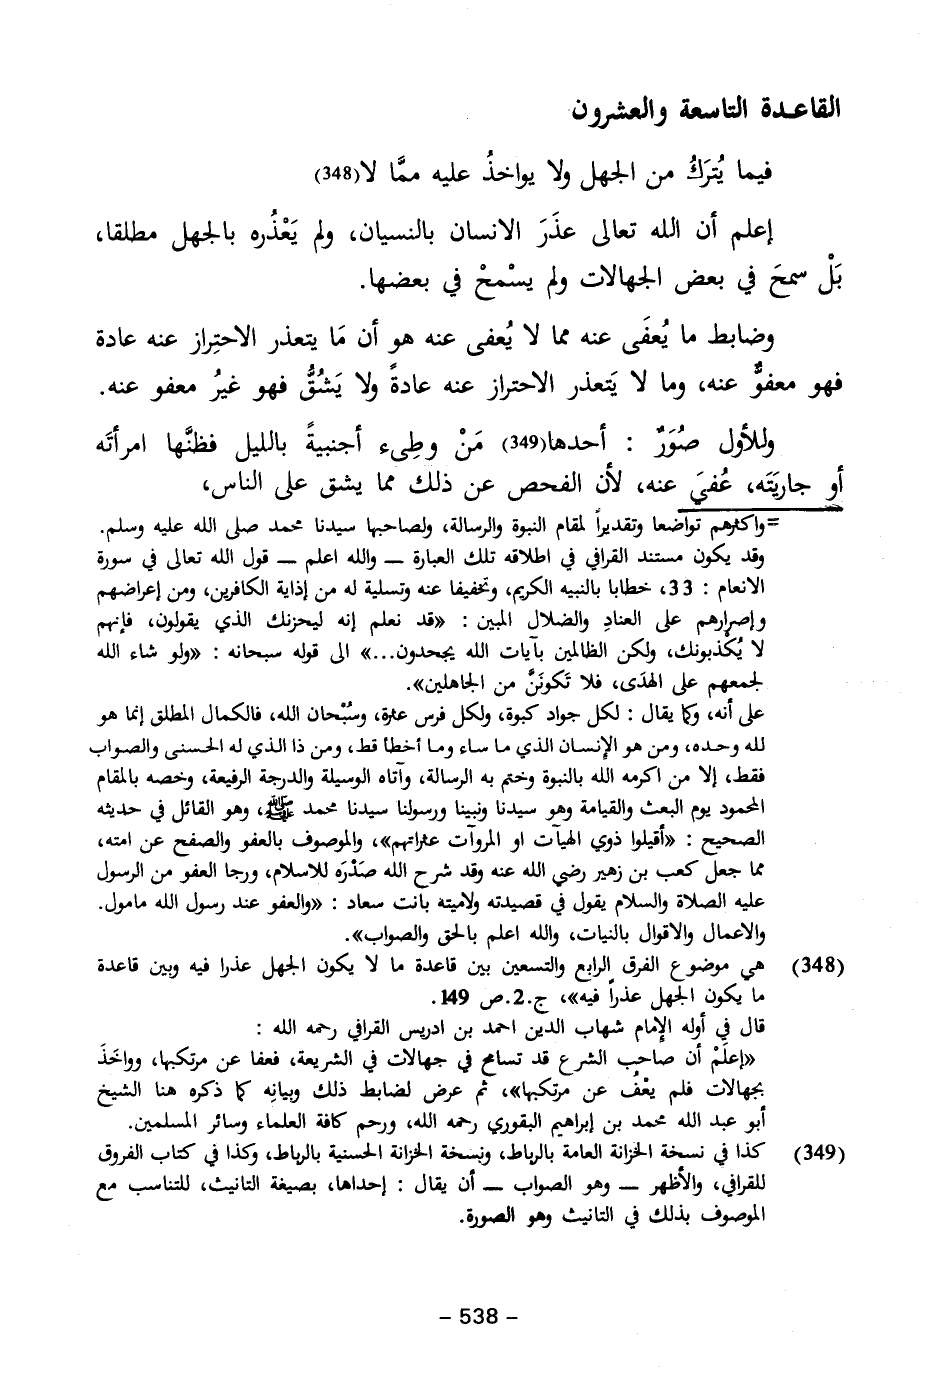 القاعدة التاسعة والعشرون
فيما يُترَكُ من الجهل ولا يواخذُ عليه ممَّا لا(348)
إعلم أن الله تعالى عذَرَ الانسان بالنسيان، ولم يَعْذُره بالجهل مطلقا،
بَلْ سمحَ في بعض الجهالات ولم يسْمحْ في بعضها.
وضابط ما يُعفَى عنه مما لا يُعفى عنه هو أن مَا يتعذر الاحتِراز عنه عادة
فهو معفوٌّ عنه، وما لا يَتعذر الاحتراز عنه عادةً ولا يَشُقُّ فهو غيرُ معفو عنه.
وللأول صُوَرٌ : أحدها(349) مَنْ وطِىء أجنبيةً بالليل فظنَّها امرأتَه
أو جاريَتَه، عُفيَ عنه، لأن الفحص عن ذلك مما يشق على الناس،
=واكثرهم تواضعا وتقديراً لمقام النبوة والرسالة، ولصاحبها سيدنا محمد صلى الله عليه وسلم.
وقد يكون مستند القرافي في اطلاقه تلك العبارة ــ والله اعلم ــ قول الله تعالى في سورة
الانعام : 33، خطابا بالنبيه الكريم، وتخفيفا عنه وتسلية له من إذاية الكافرين، ومن إعراضهم
وإصرارهم على العنادِ والضلال المبين : «قد نعلم إنه ليحزنك الذي يقولون، فإنهم
لا يُكْذبونك، ولكن الظالمين بآيات الله يجحدون...» الى قوله سبحانه : «ولو شاء الله
لجمعهم على الهدَى، فلا تَكونَنَّ من الجاهلين».
على أنه، وكما يقال : لكل جواد كبوة، ولكل فرس عثرة، وسُبْحان الله، فالكمال المطلق إنما هو
لله وحده، ومن هو الإنسان الذي ما ساء وما أخطأ قط، ومن ذا الذي له الحسنى والصواب
فقط، إلا من اكرمه الله بالنبوة وختم به الرسالة، وآتاه الوسيلة والدرجة الرفيعة، وخصه بالمقام
المحمود يوم البعث والقيامة وهو سيدنا ونبينا ورسولنا سيدنا محمد ﷺ، وهو القائل في حديثه
الصحيح : «أقيلوا ذوي الهيآت او المروآت عثراتهم»، والموصوف بالعفو والصفح عن امته،
مما جعل كعب بن زهير رضي الله عنه وقد شرح الله صَدْرَه للاسلام، ورجا العفو من الرسول
عليه الصلاة والسلام يقول في قصيدته ولاميته بانت سعاد : «والعفو عند رسول الله مامول.
والاعمال والاقوال بالنيات، والله اعلم بالحق والصواب».
(348) هي موضوع الفرق الرابع والتسعين بين قاعدة ما لا يكون الجهل عذرا فيه وبين قاعدة
ما يكون الجهل عذراً فيه»، ج.2.ص 149.
قال في أوله الإمام شهاب الدين احمد بن ادريس القرافي رحمه الله :
«إعلَمْ أن صاحب الشرع قد تسامح في جهالات في الشريعة، فعفا عن مرتكبها، وواخَذَ
بجهالات فلم يعْفُ عن مرتكبها»، ثم عرض لضابط ذلك وبيانِه كما ذكره هنا الشيخ
أبو عبد الله محمد بن إبراهيم البقوري رحمه الله، ورحم كافة العلماء وسائر المسلمين.
(349) كذا في نسخة الخزانة العامة بالرباط، ونسخة الخزانة الحسنية بالرباط، وكذا في كتاب الفروق
للقرافي، والأظهر ــ وهو الصواب ــ أن يقال : إحداها، بصيغة التانيث، للتناسب مع
الموصوف بذلك في التانيث وهو الصورة.
- 538 -